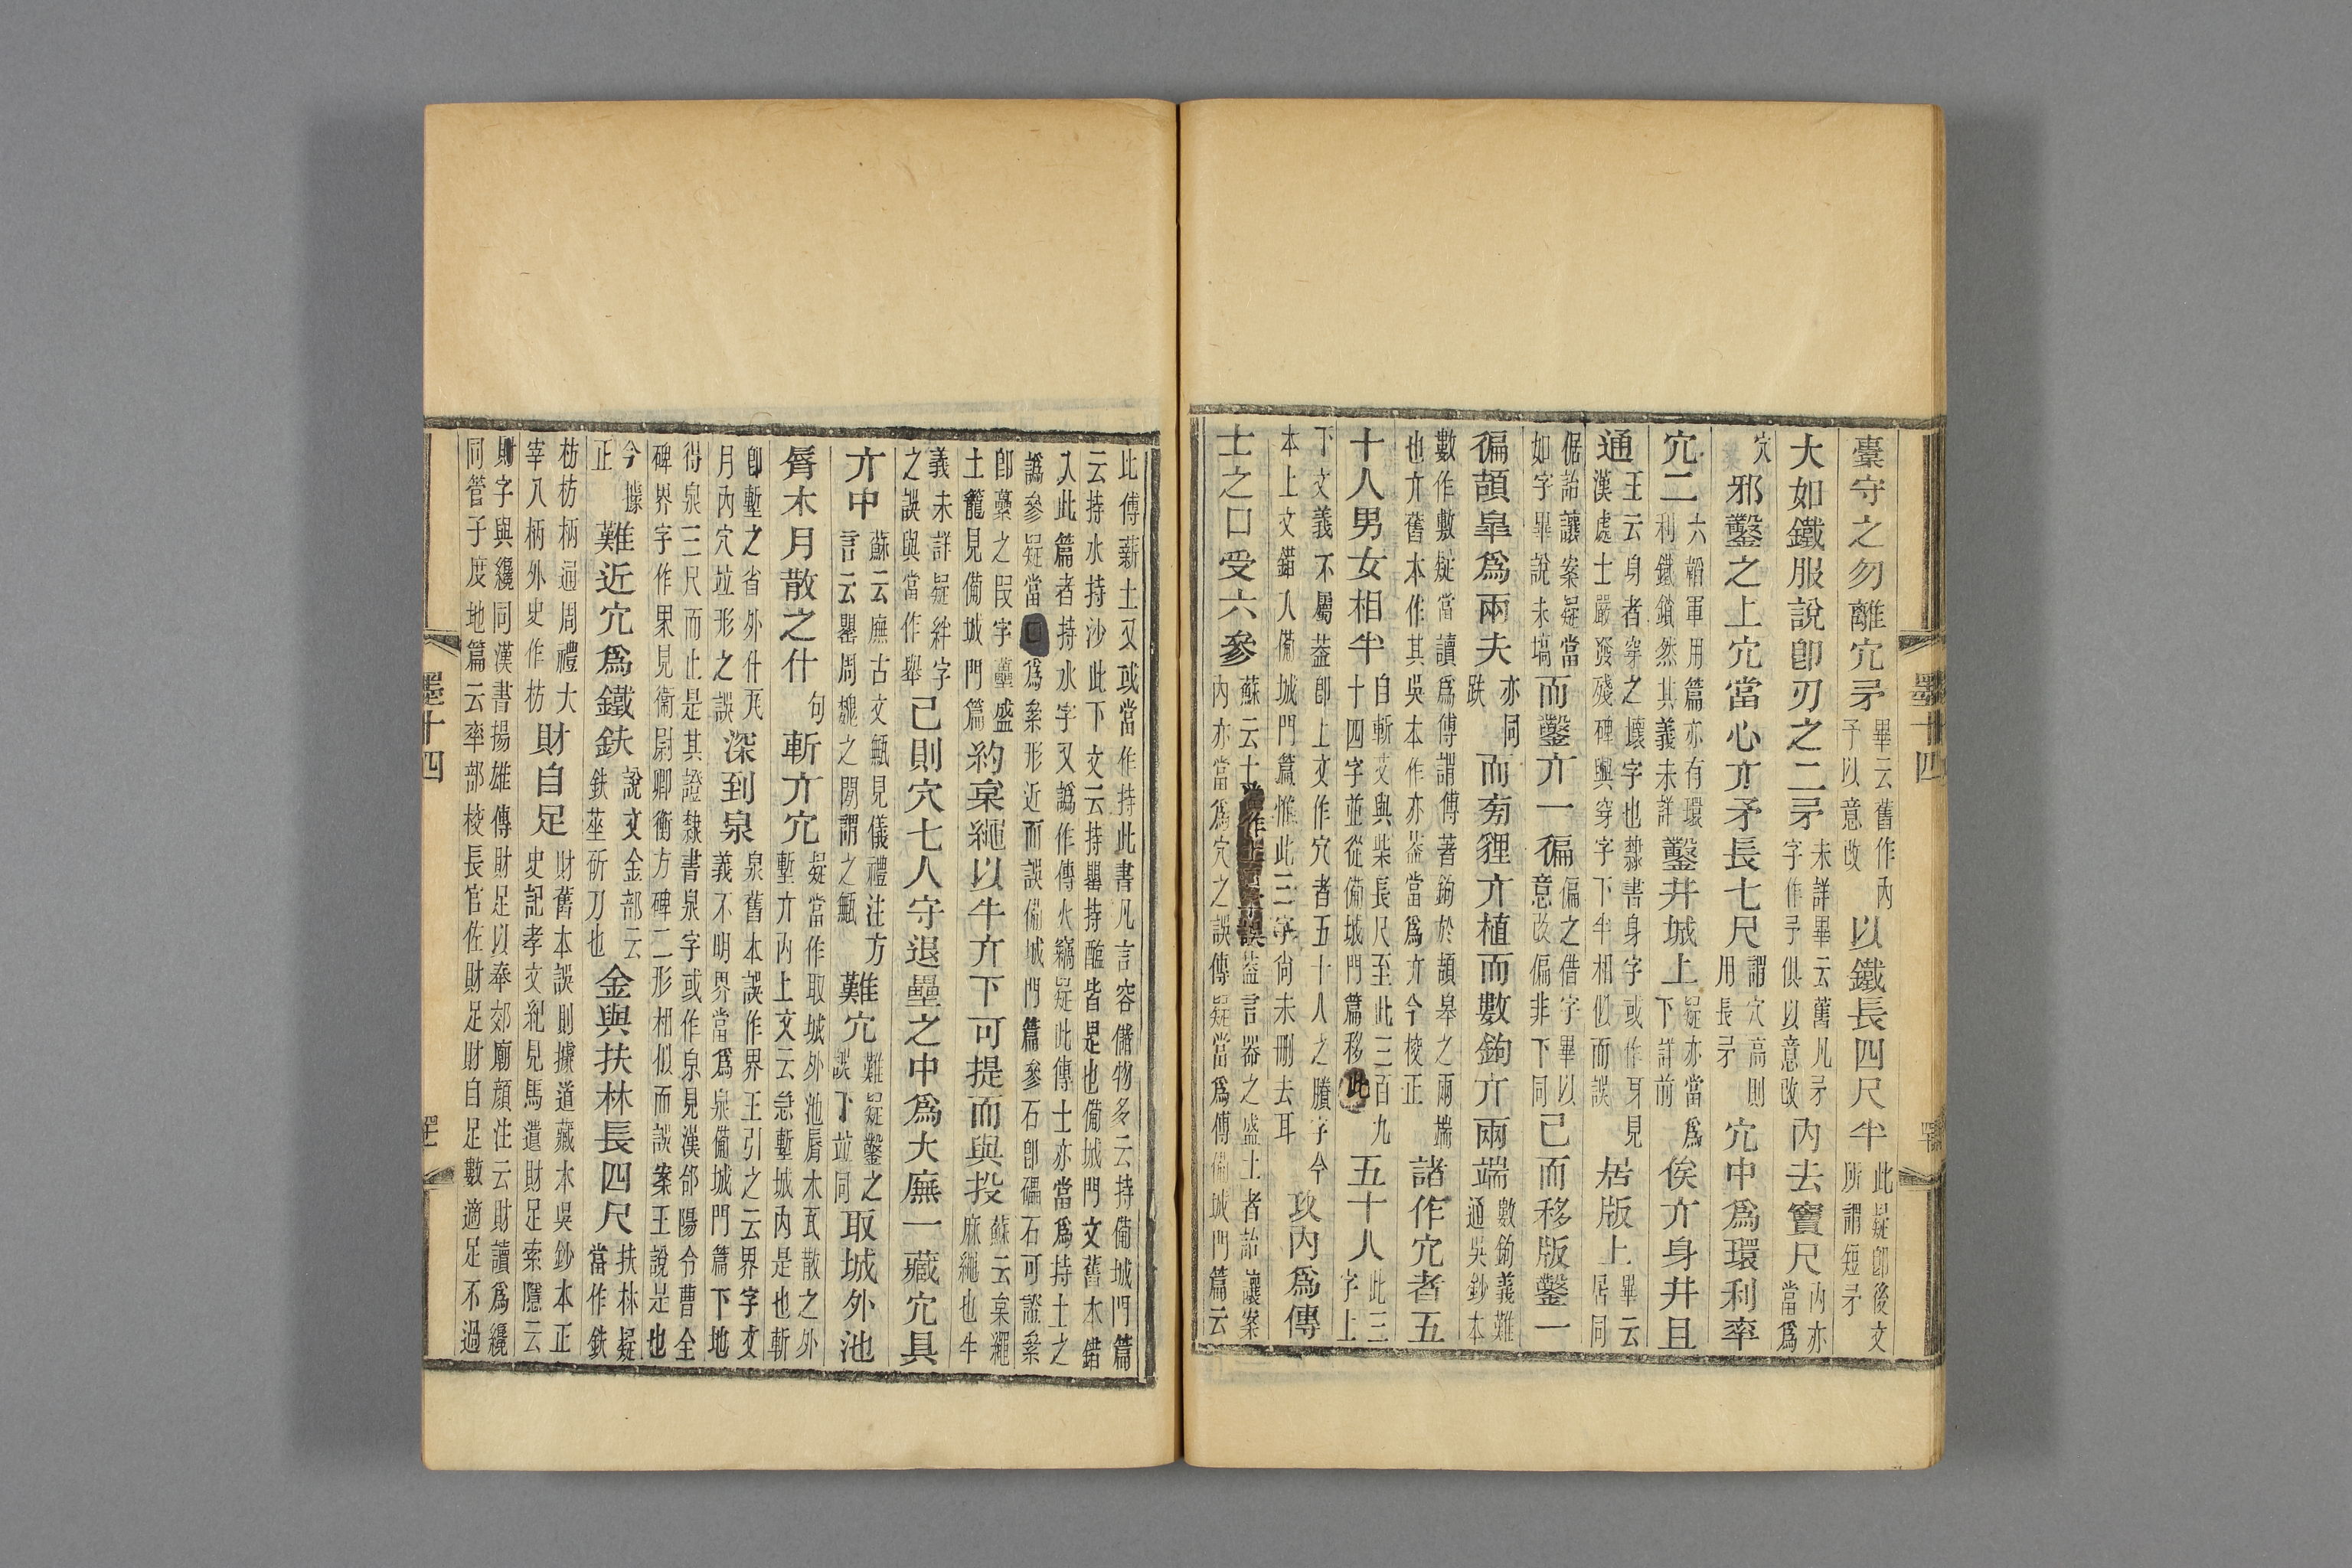 臺守之勿離穴矛畢云舊作內予以意改以鐵長四尺半此疑卽後文所謂短矛
大如鐵服說卽刃之二矛未詳畢云舊凡矛字作予俱以意改內去竇尺內亦當爲
穴邪鑿之上穴當心亣矛長七尺謂穴高則用長矛穴中爲環利率
穴二六韜軍用篇亦有環利鐵鎖然其義未詳鑿井城上疑亦當爲下詳前俟亣身井且
通王云身者穿之壞字也隸書身字或作耳見漢處士嚴發殘碑與穿字下半相似而誤居版上畢云居同
倨詒讓案疑當如字畢說未塙而鑿亣一徧偏之借字畢以意改偏非下同已而移版鑿一
徧頡臯爲兩夫亦同趺而㫄貍亣植而數鉤亣兩端數鉤義難通吳鈔本
數作敷疑當讀爲傅謂傅著鉤於頡皋之兩端也亣舊本作其吳本作亦葢當爲亣今校正諸作穴者五
十人男女相半自斬艾與柴長尺至此三百九十四字並從備城門篇移此五十人此三字上
下文義不屬葢卽上文作穴者五十人之賸字今本上文錯入備城門篇惟此三字尚未刪去耳攻內爲傳
士之口受六參蘇云士當作土口當爲之誤內亦當爲穴之誤傳疑當爲傅備城門篇云葢言器之盛土者詒讓案
此傅薪土又或當作持此書凡言容儲物多云持備城門篇
云持水持沙此下文云持罌持醯皆是也備城門文舊本錯
入此篇者持水字又譌作傳火竊疑此傳士亦當爲持土之
譌參疑當口爲絫形近而誤備城門篇參石卽礧石可證絫
卽虆之叚字虆盛土籠見備城門篇約枲繩以牛亣下可提而與投蘇云枲繩麻繩也牛
義未詳疑絆字之誤與當作舉已則穴七人守退壘之中爲大廡一藏穴具
亣中蘇云廡古文甒見儀禮注方言云罌周魏之閒謂之甒難穴難疑鑿之誤下竝同取城外池
脣木月散之什句斬亣穴疑當作取城外池脣木瓦散之外塹亣內上文云急塹城內是也斬
卽塹之省外什瓦月內穴竝形之誤深到泉泉舊本誤作界王引之云界字文義不明界當爲泉備城門篇下地
得泉三尺而止是其證隸書泉字或作𣳾見漢郃陽令曹全碑界字作畍見衞尉卿衡方碑二形相似而誤案王說是也
今據正難近穴爲鐵鈇說文金部云鈇莝斫刀也金與扶林長四尺扶林疑當作鈇
枋枋柄通周禮大宰八柄外史作枋財自足財舊本誤則據道藏本吳鈔本正史記孝文紀見馬遺財足索隱云
財字與纔同漢書揚雄傳財足以奉郊廟顏注云財讀爲纔同管子度地篇云率部校長官佐財足財自足數適足不過
墨十四
墨十四